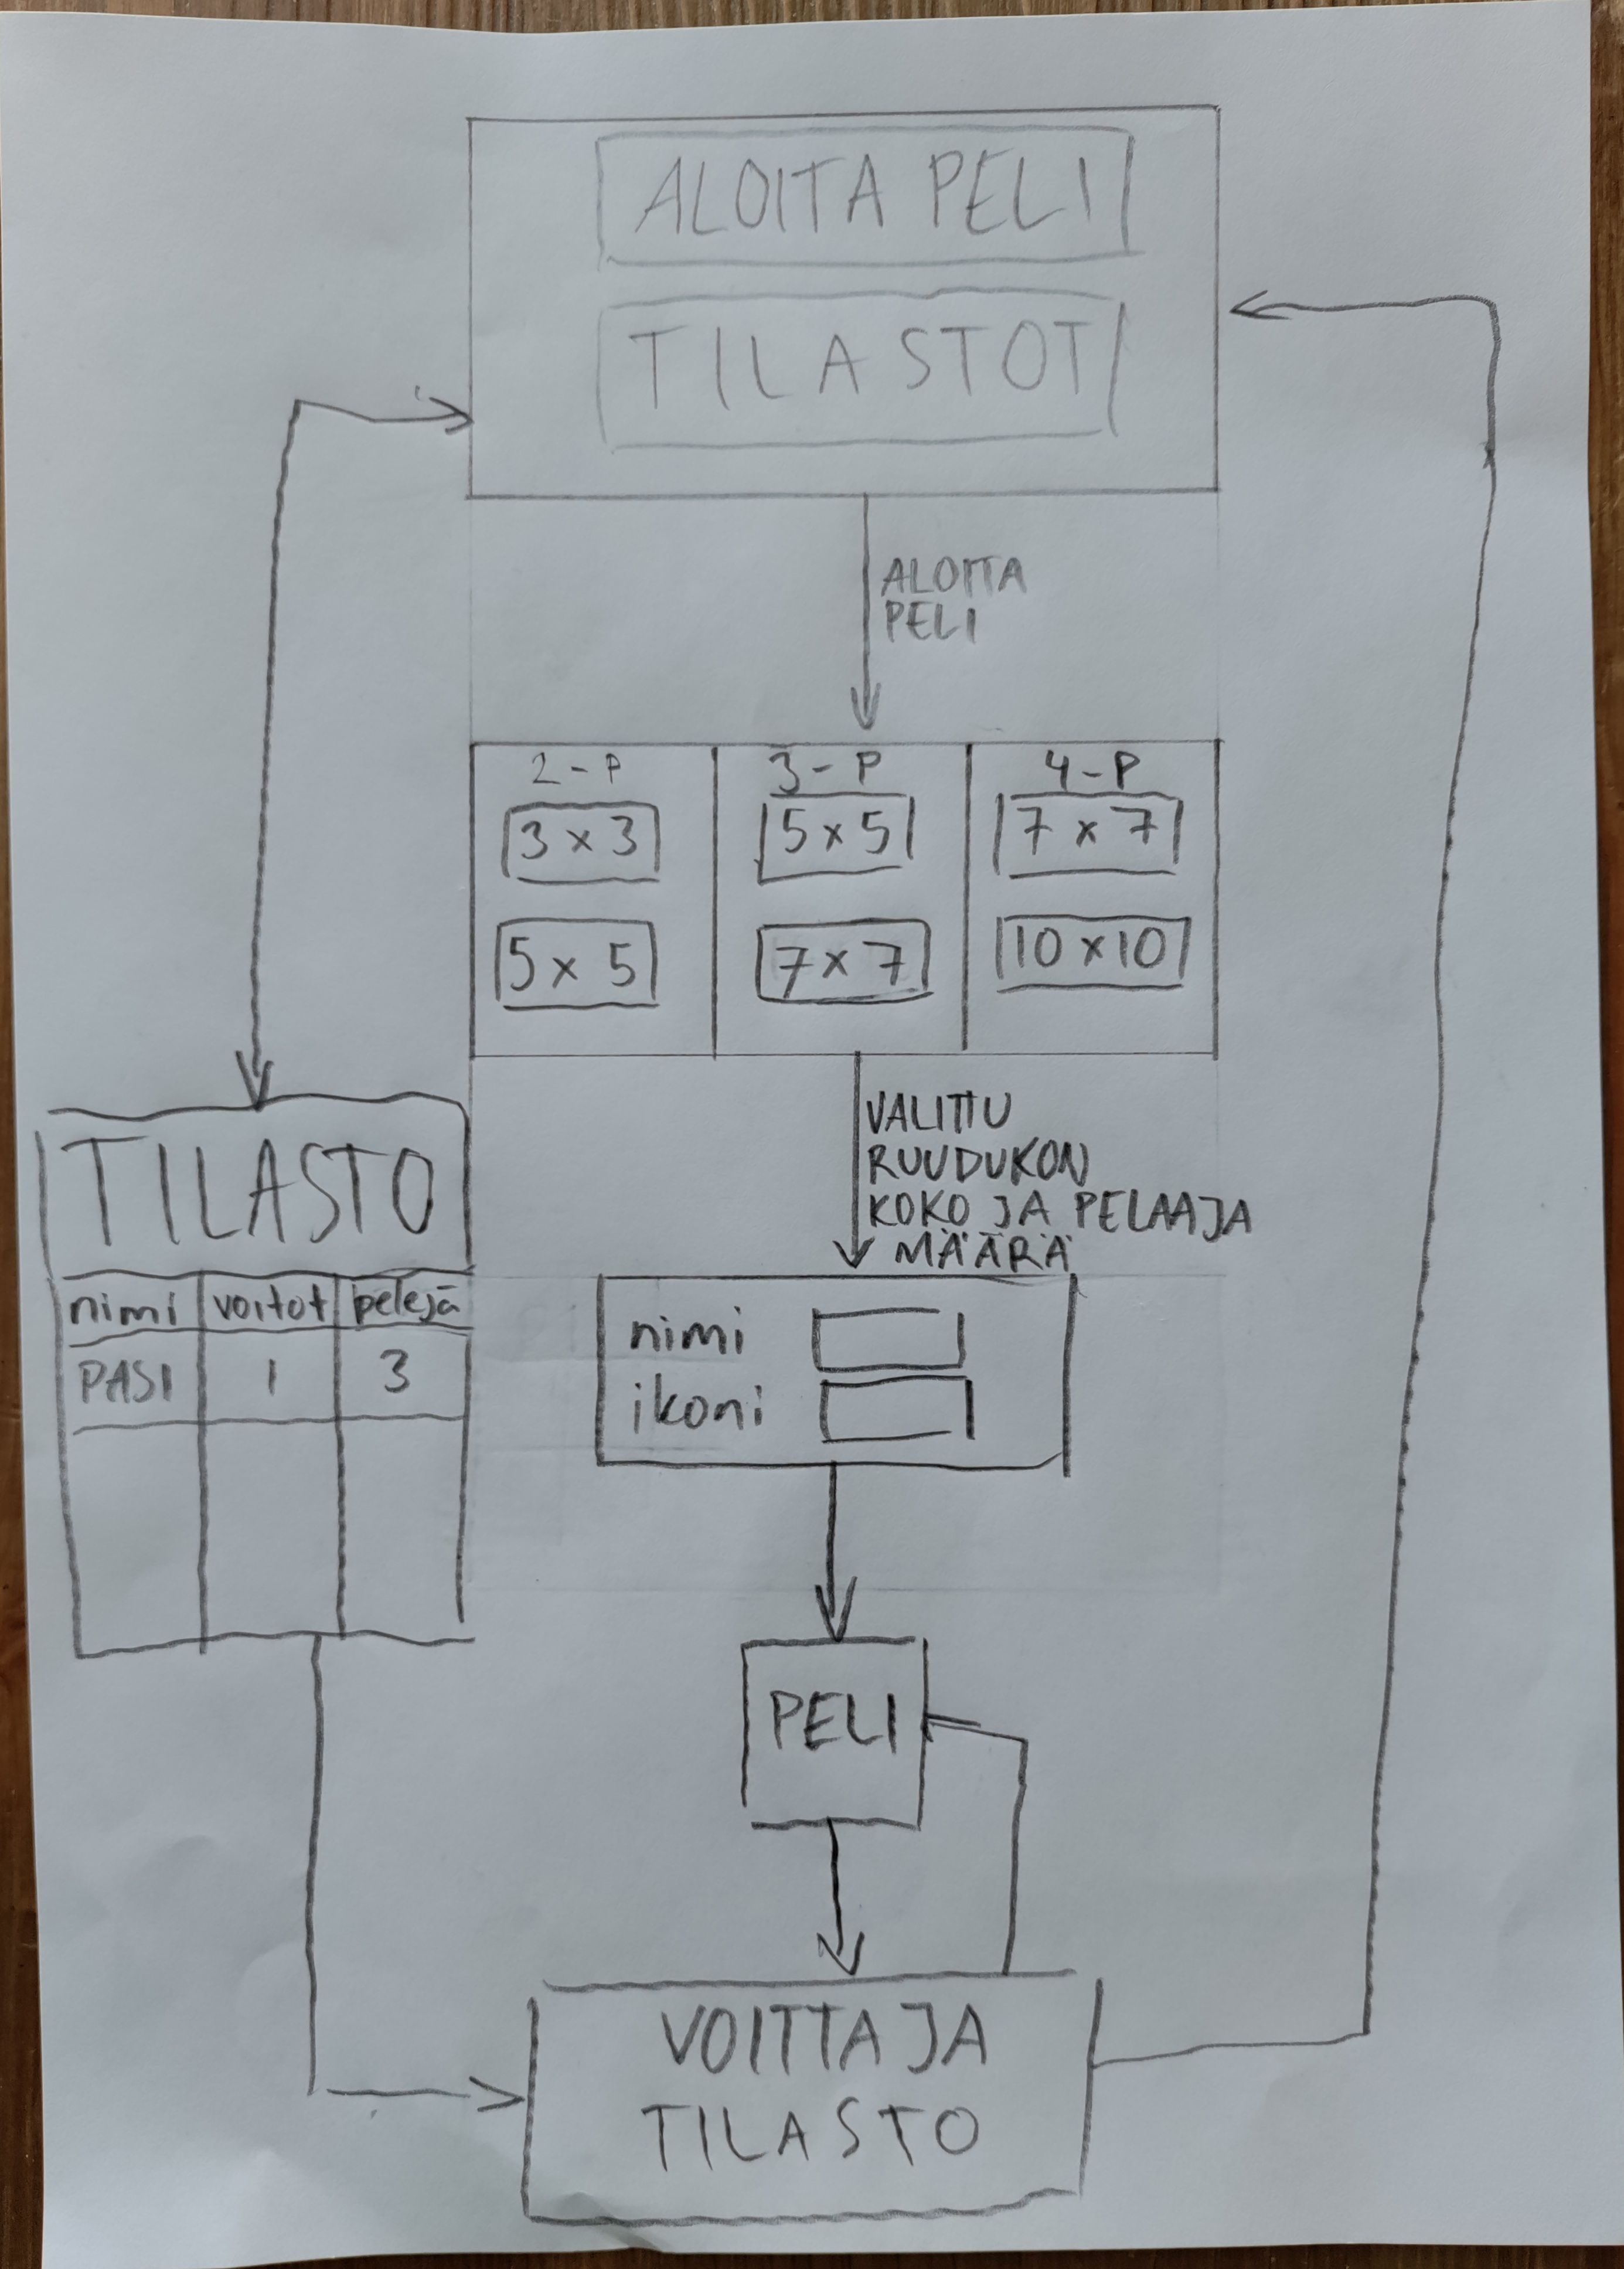 ALOITA PELI
TILASTOT
ALOITA
PELI
2-P
3-P
4-P
3 x 3
5 x 5
7 x 7
5 x 5
7 x 7
10 x 10
VALITTU
RUUDUKON
KOKO JA PELAAJA
MÄÄRÄ
TILASTO
nimi
voitot
pelejä
PASI
1
3
nimi
ikoni
PELI
VOITTAJA
TILASTO